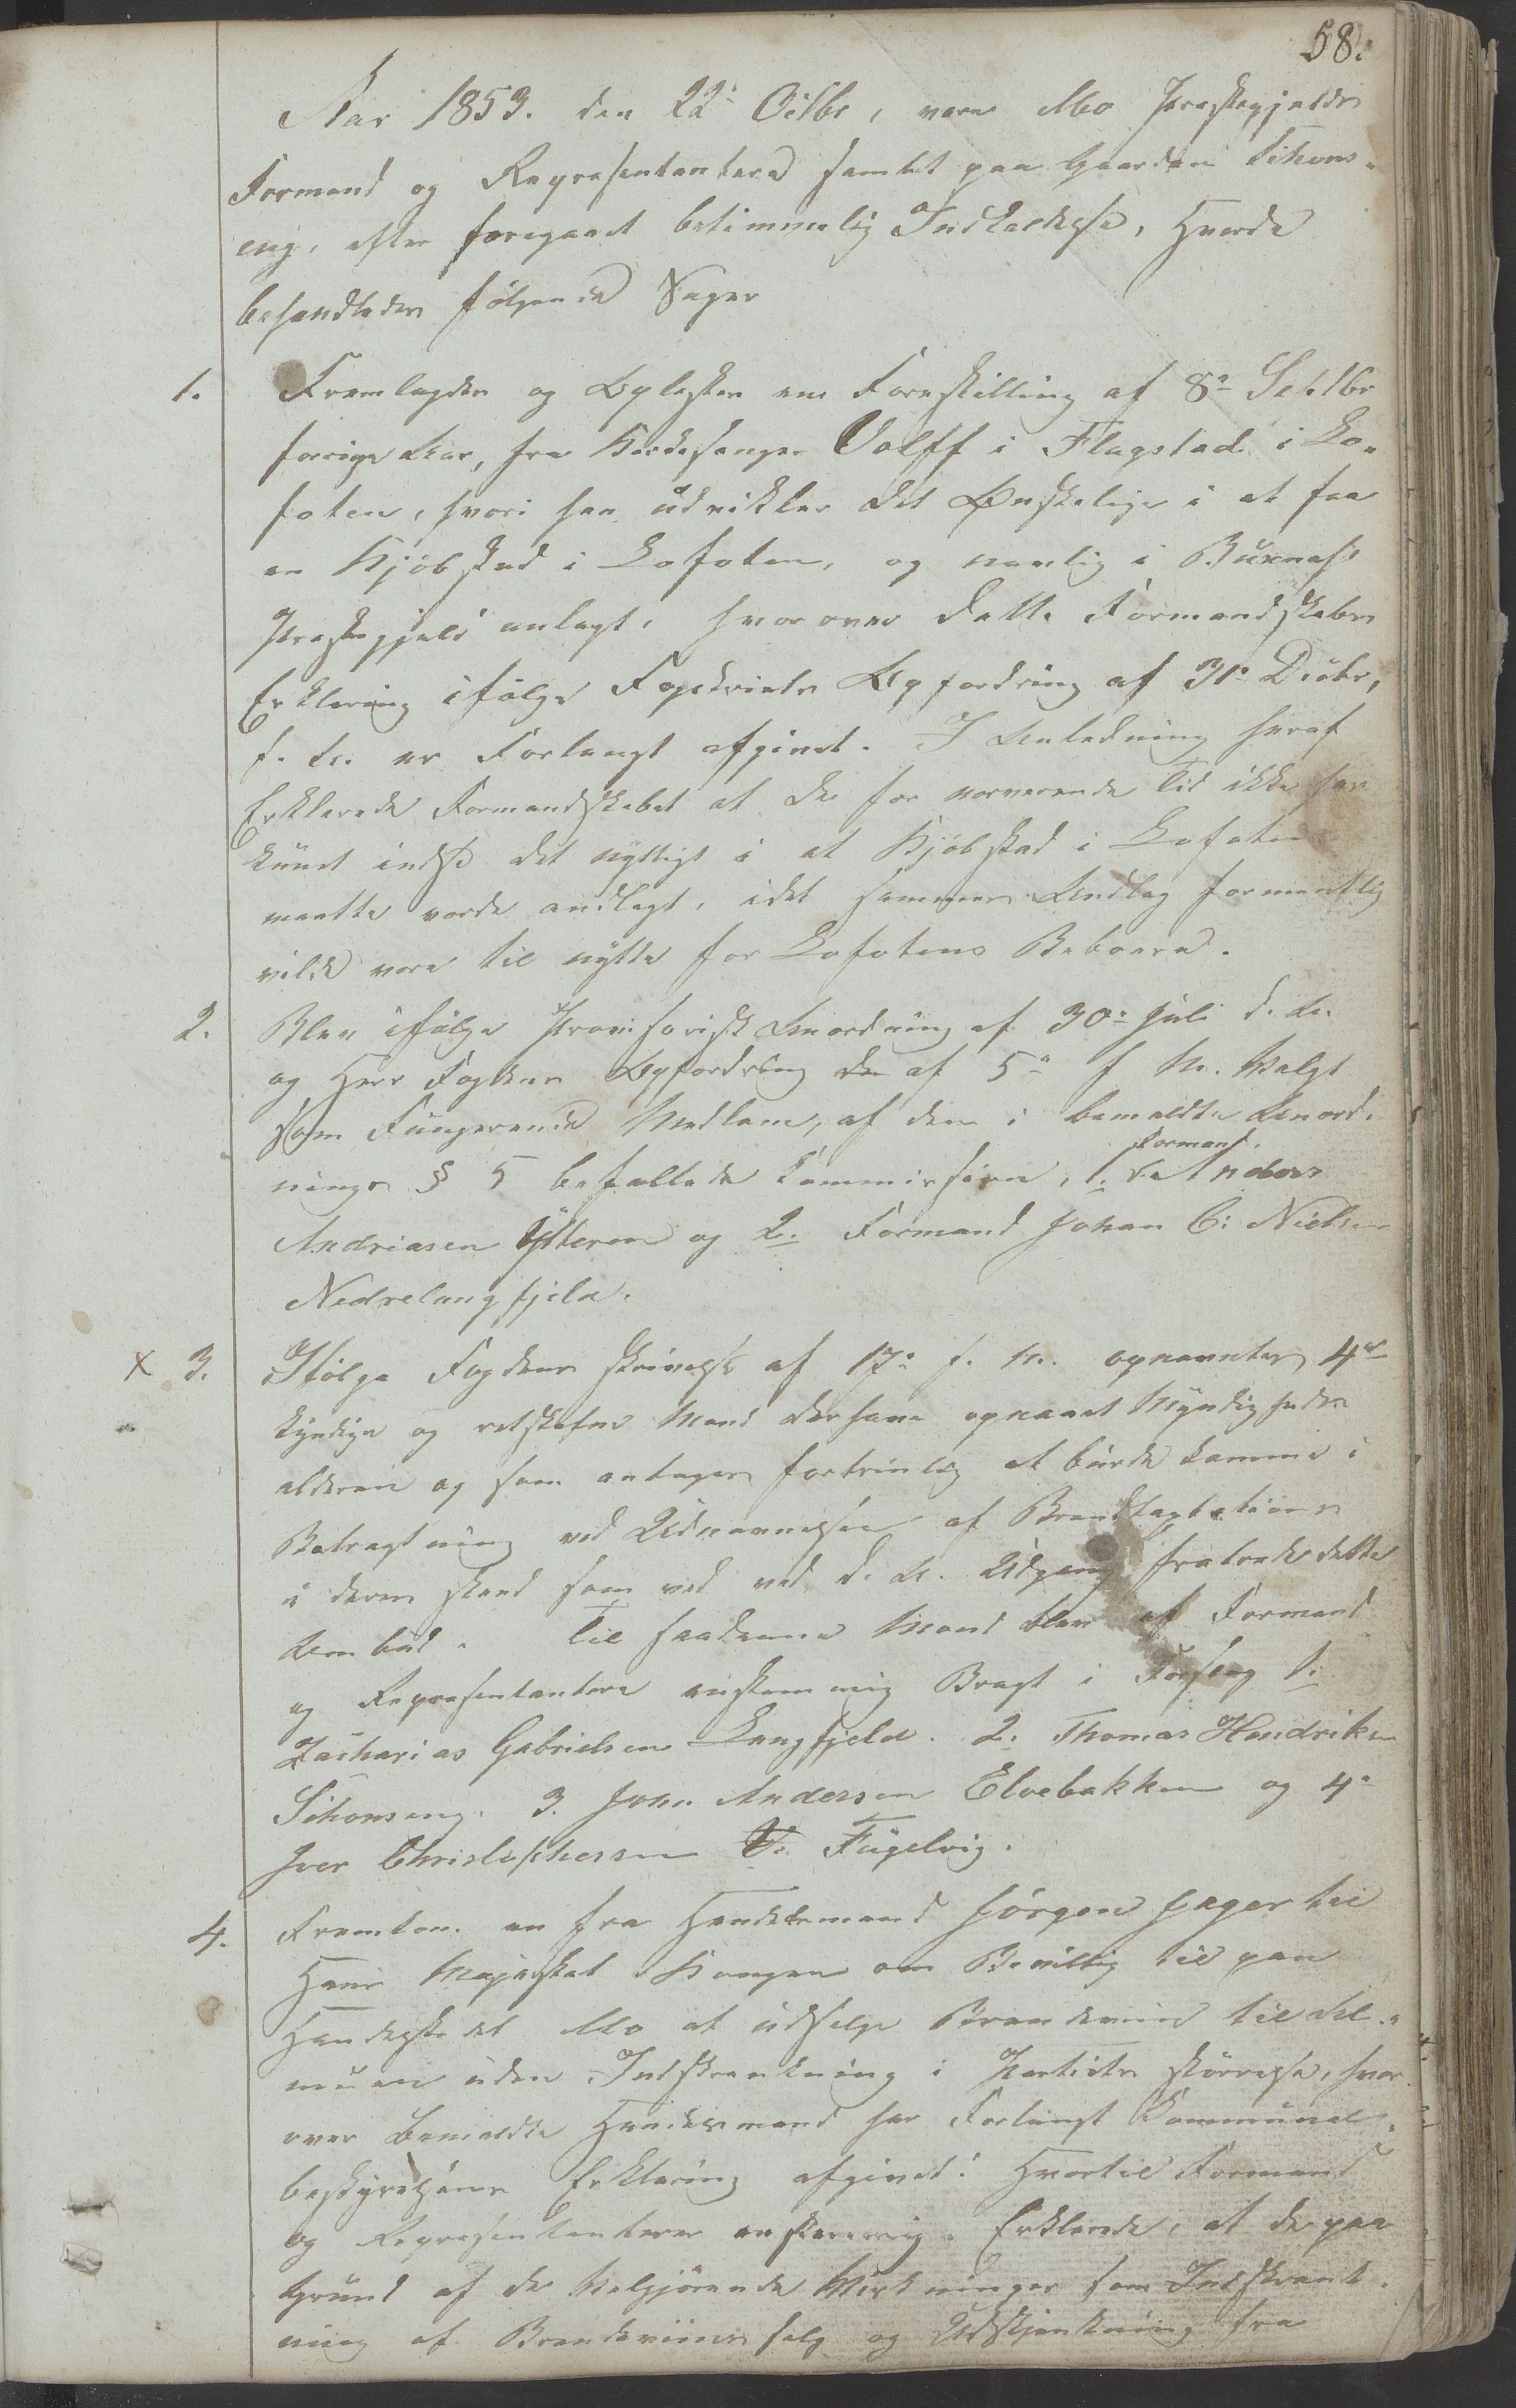 58.
Aar 1853. den 22de Octbr, vare Mo Præstegjelds
Formænd og Repræsentantere samlet paa Gaarden Sihons-
eng, efter foregaaet betimmelig Indkaldelse, Hvorda
behandledes følgende Sager
1. Fremlagdes og Oplæstes en Forestilling af 8de Septbr
forrige Aar, fra Kirkesanger Volff i Flagstad i Lo-
foten, hvori han udvikler det Ønskelige i at faa
en Kjøbstad i Lofoten, og navnlig i Buxnæs
Præstegjeld anlagt, hvorover dette Formandskabs
Erklæring ifølge Fogderiets Opfordring af 31te Decbr,
f. A. er Forlangt afgivet. I Anledning heraf
Erklærede Formandskabet at de for nærværende Tid ikke har
kundet indse det nyttigt i at Kjøbstad i Lofoten
maatte vorde andlagt, idet sammes Andlæg formentlig
vilde være til nytte for Lofotens Beboere.
2. Blev ifølge Provisorisk Anordning af 30te Juli d. A.
og Herr Fogdens Opfordring de af 5te f M. Valgt
som Fungerende Medlem, af den i bemeldte Anord-
nings § 5 befallede Commission, 1. Formand. Anders
Andriasen Ytteren og 2. Formand Johan C: Nielsen
Nedrelangfjeld.
x 3. Ifølge Fogdens skrivelse af 17de f. M. opnævntes 4re
kyndige og retskafne Mænd der have opnaaet Myndigheds
alderen og som antages fortrinlig at burde komme i
Betragtning ved Udnævnelsen af Brandtaxtations
i deres sted som ved ved d. A. Udgang fratræde dette
Ombud. Til saadanne Mænd blev af Formænd
og Repræsentantere enstemmig Bragt i Forslag 1.
Zacharias Gabrielsen Langfjeld. 2. Thomas Hendriksen
Sihonseng. 3. John Andersen Elvebakken og 4de
Iver Christophersen Fugelvig.
4. Fremkom en fra Handelsmand Jörgen Jager til
Hans Majestæt Kongen om Bevillig til paa
Handelsstedet Mo at udselge Brændeviin til Al-
muen uden Indskrænkning i Partiets størrelse, hvor-
over Bemeldte Handelsmand har Forlangt Commune-
bestyrelsens Erklæring afgivet: Hvortil Formænd
og Repræsentanterne enstemmig Erklærede, at de paa
Grund af de Velgjørende Virkninger som Indskrænk-
ning af Brændeviins salg og Udskjænkning fra